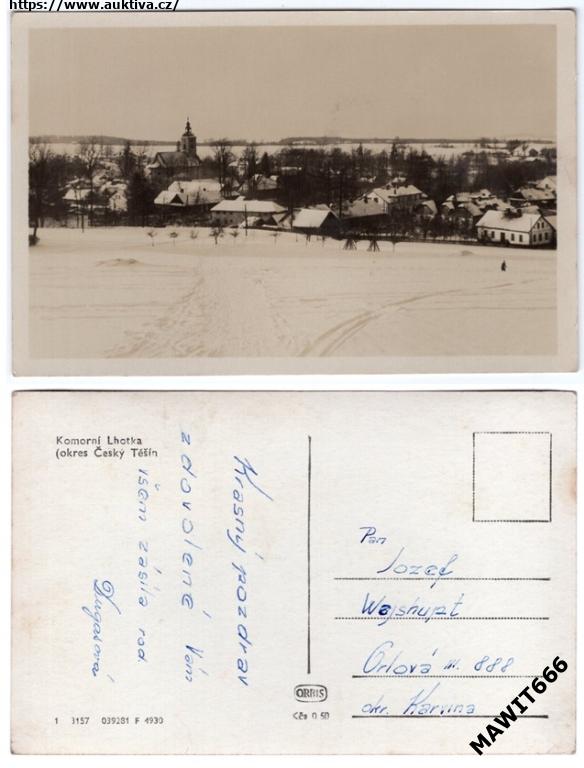 https://www.auktiva.cz/
Komorní Lhotka
(okres Český Těšín
Krásný pozdrav
z dovolené Vám
všem zasílá rod.
Pan
Jozef
Wajshupt
Orlová 888
okr. Karvina
ORBIS
Kčs 0 50
1 3157 039281 F 4930
MAWIT666